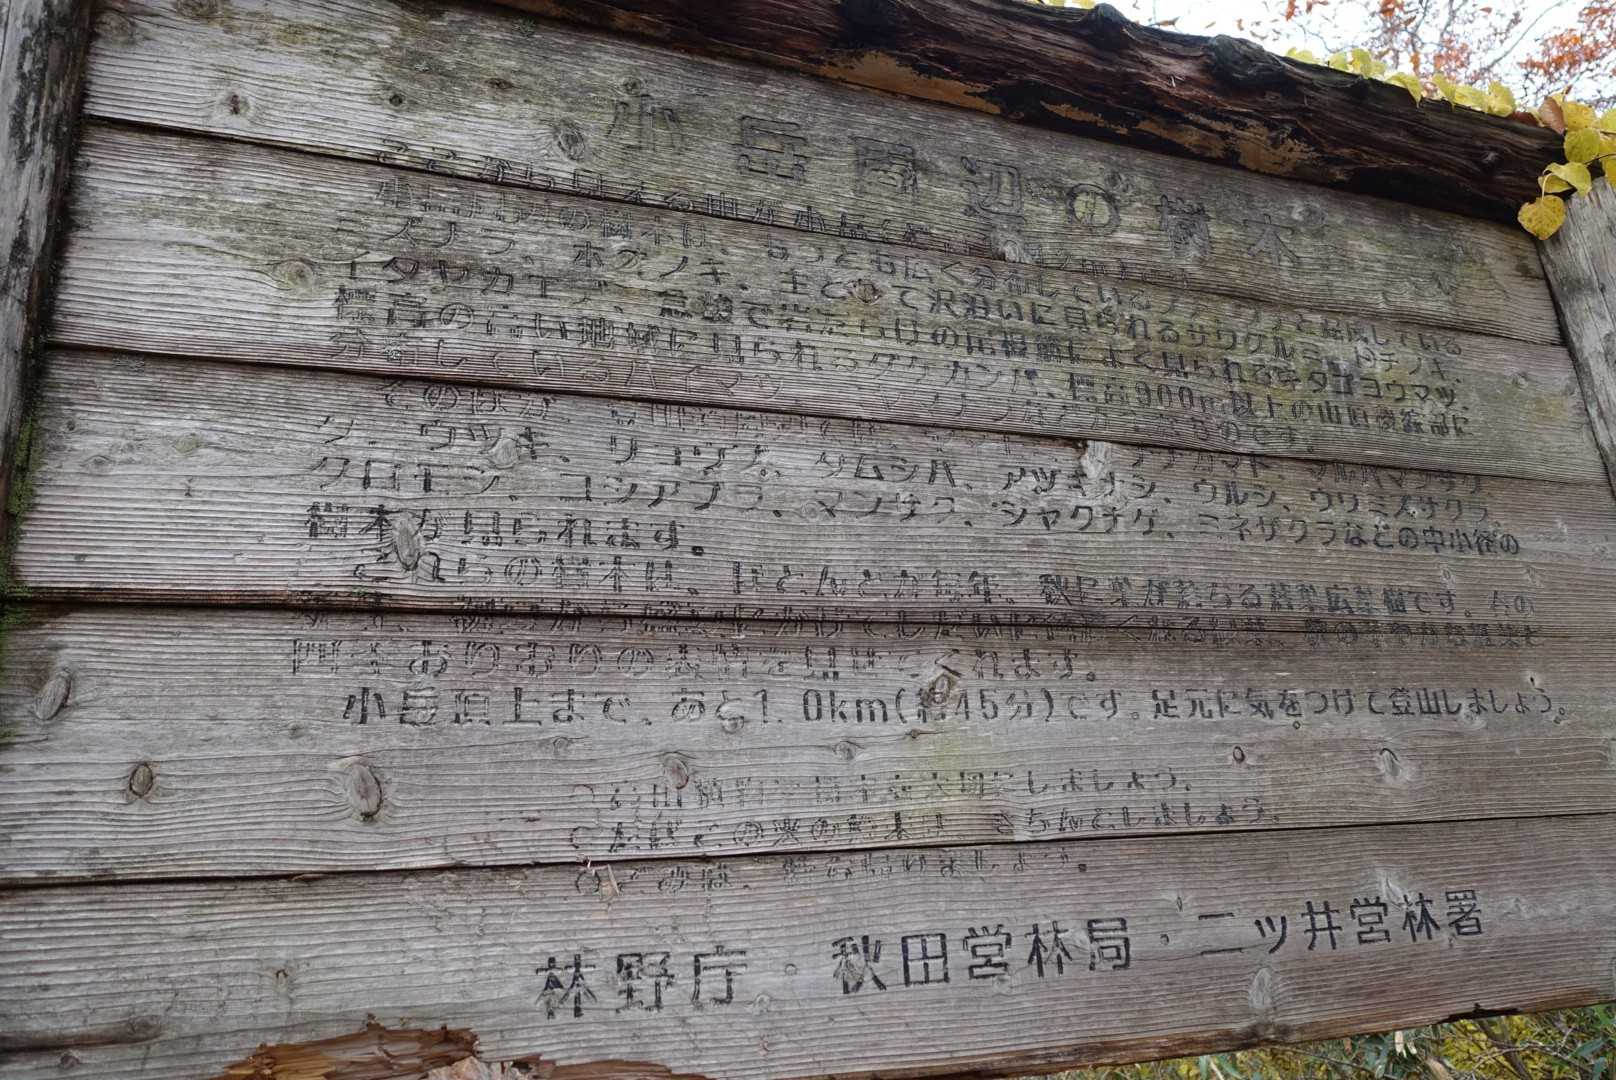 小岳周辺の樹木
ここから見える山が小岳
小岳周辺の樹木は、もっとも広く分布しているブナ、ブナと混成している
ミズナラ、ホオノキ、主として沢沿いに見られるサワグルミ、トチノキ、
イタヤカエデ、急峻で岩だらけの尾根筋によく見られるキタゴヨウマツ、
標高の高い地域に見られるダケカンバ、標高900m以上の山頂稜線部に
分布しているハイマツ、ミヤマナラなどがおもなものです。
このほか、ナナカマド、マルバマンサク、
ウツギ、リョウブ、タムシバ、アヅキナシ、ウルシ、ウワミズザクラ、
クロモジ、コシアブラ、マンサク、シャクナゲ、ミネザクラなどの中小径の
樹木が見られます。
これらの樹木は、ほとんどが毎年、秋に葉が落ちる落葉広葉樹です。春の
新緑、初夏から盛夏にかけてしだいに濃くなる緑、秋の華やかな紅葉と
四季おりおりの表情を見せてくれます。
小岳頂上まで、あと1.0km(約45分)です。足元に気をつけて登山しましょう。
○高山植物や樹木を大切にしましょう。
○たばこの火の始末は、きちんとしましょう。
○ごみは、持ち帰りましょう。
林野庁・秋田営林局・二ツ井営林署